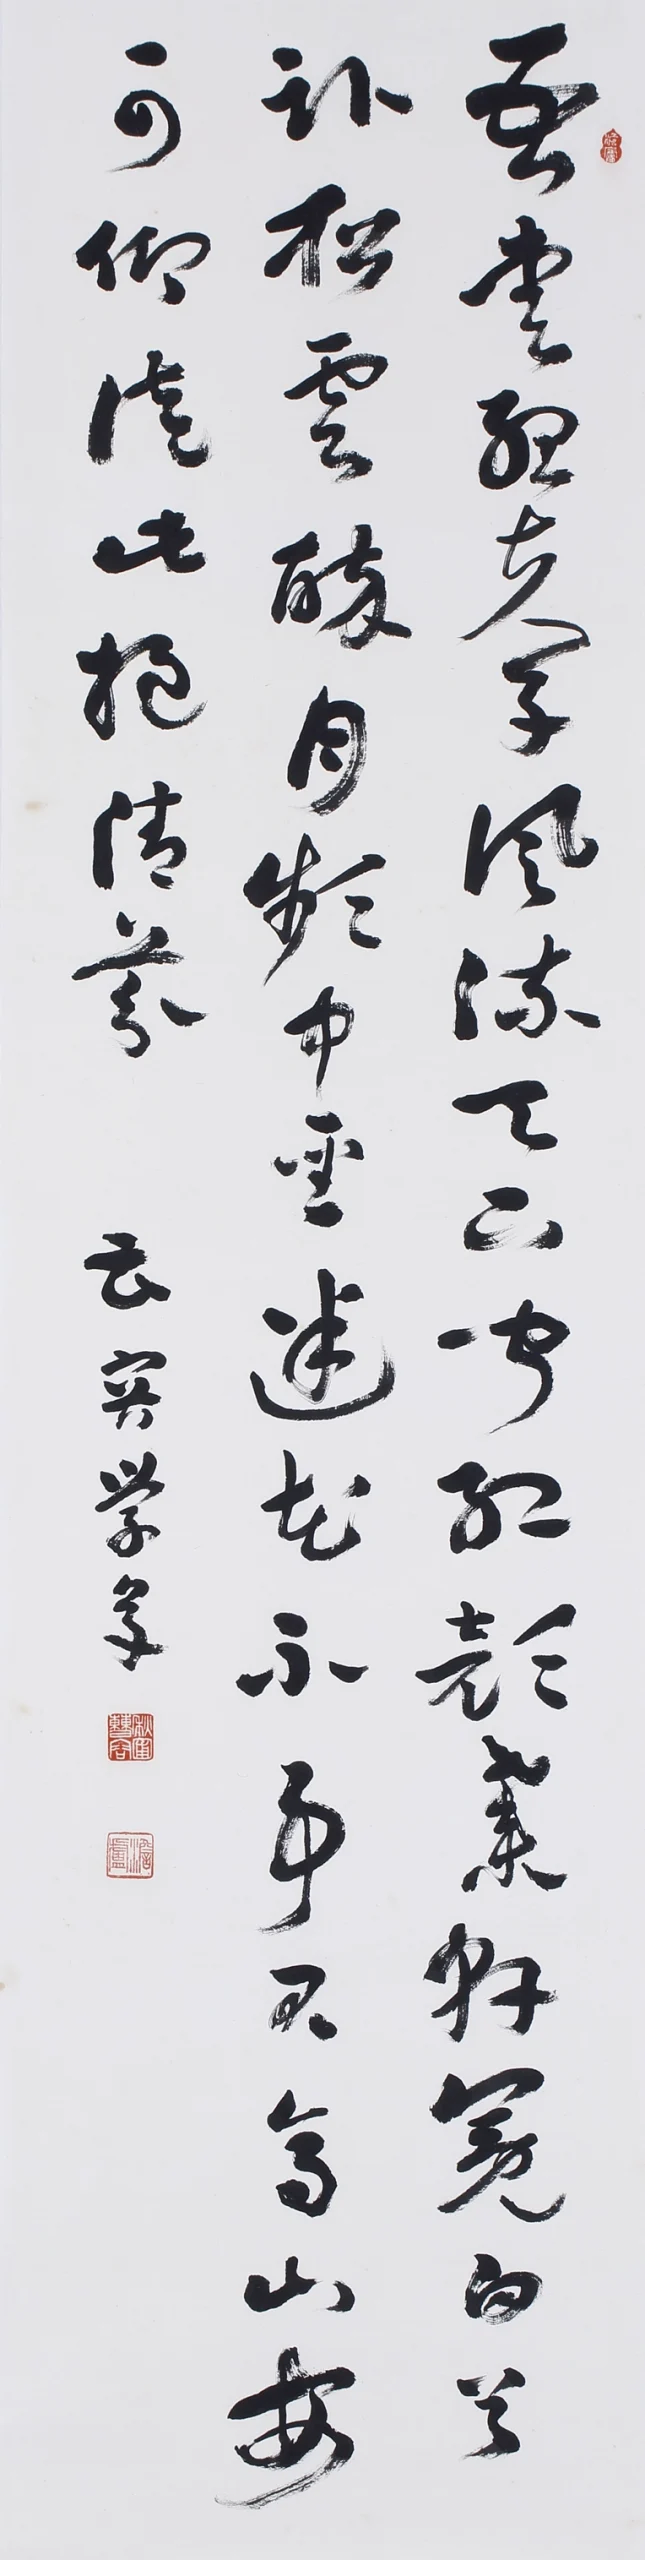 吾愛孟夫子風流天下聞紅顏棄軒冕白首
臥松雲醉月頻中聖迷花不事君高山安
可仰徒此挹清芬